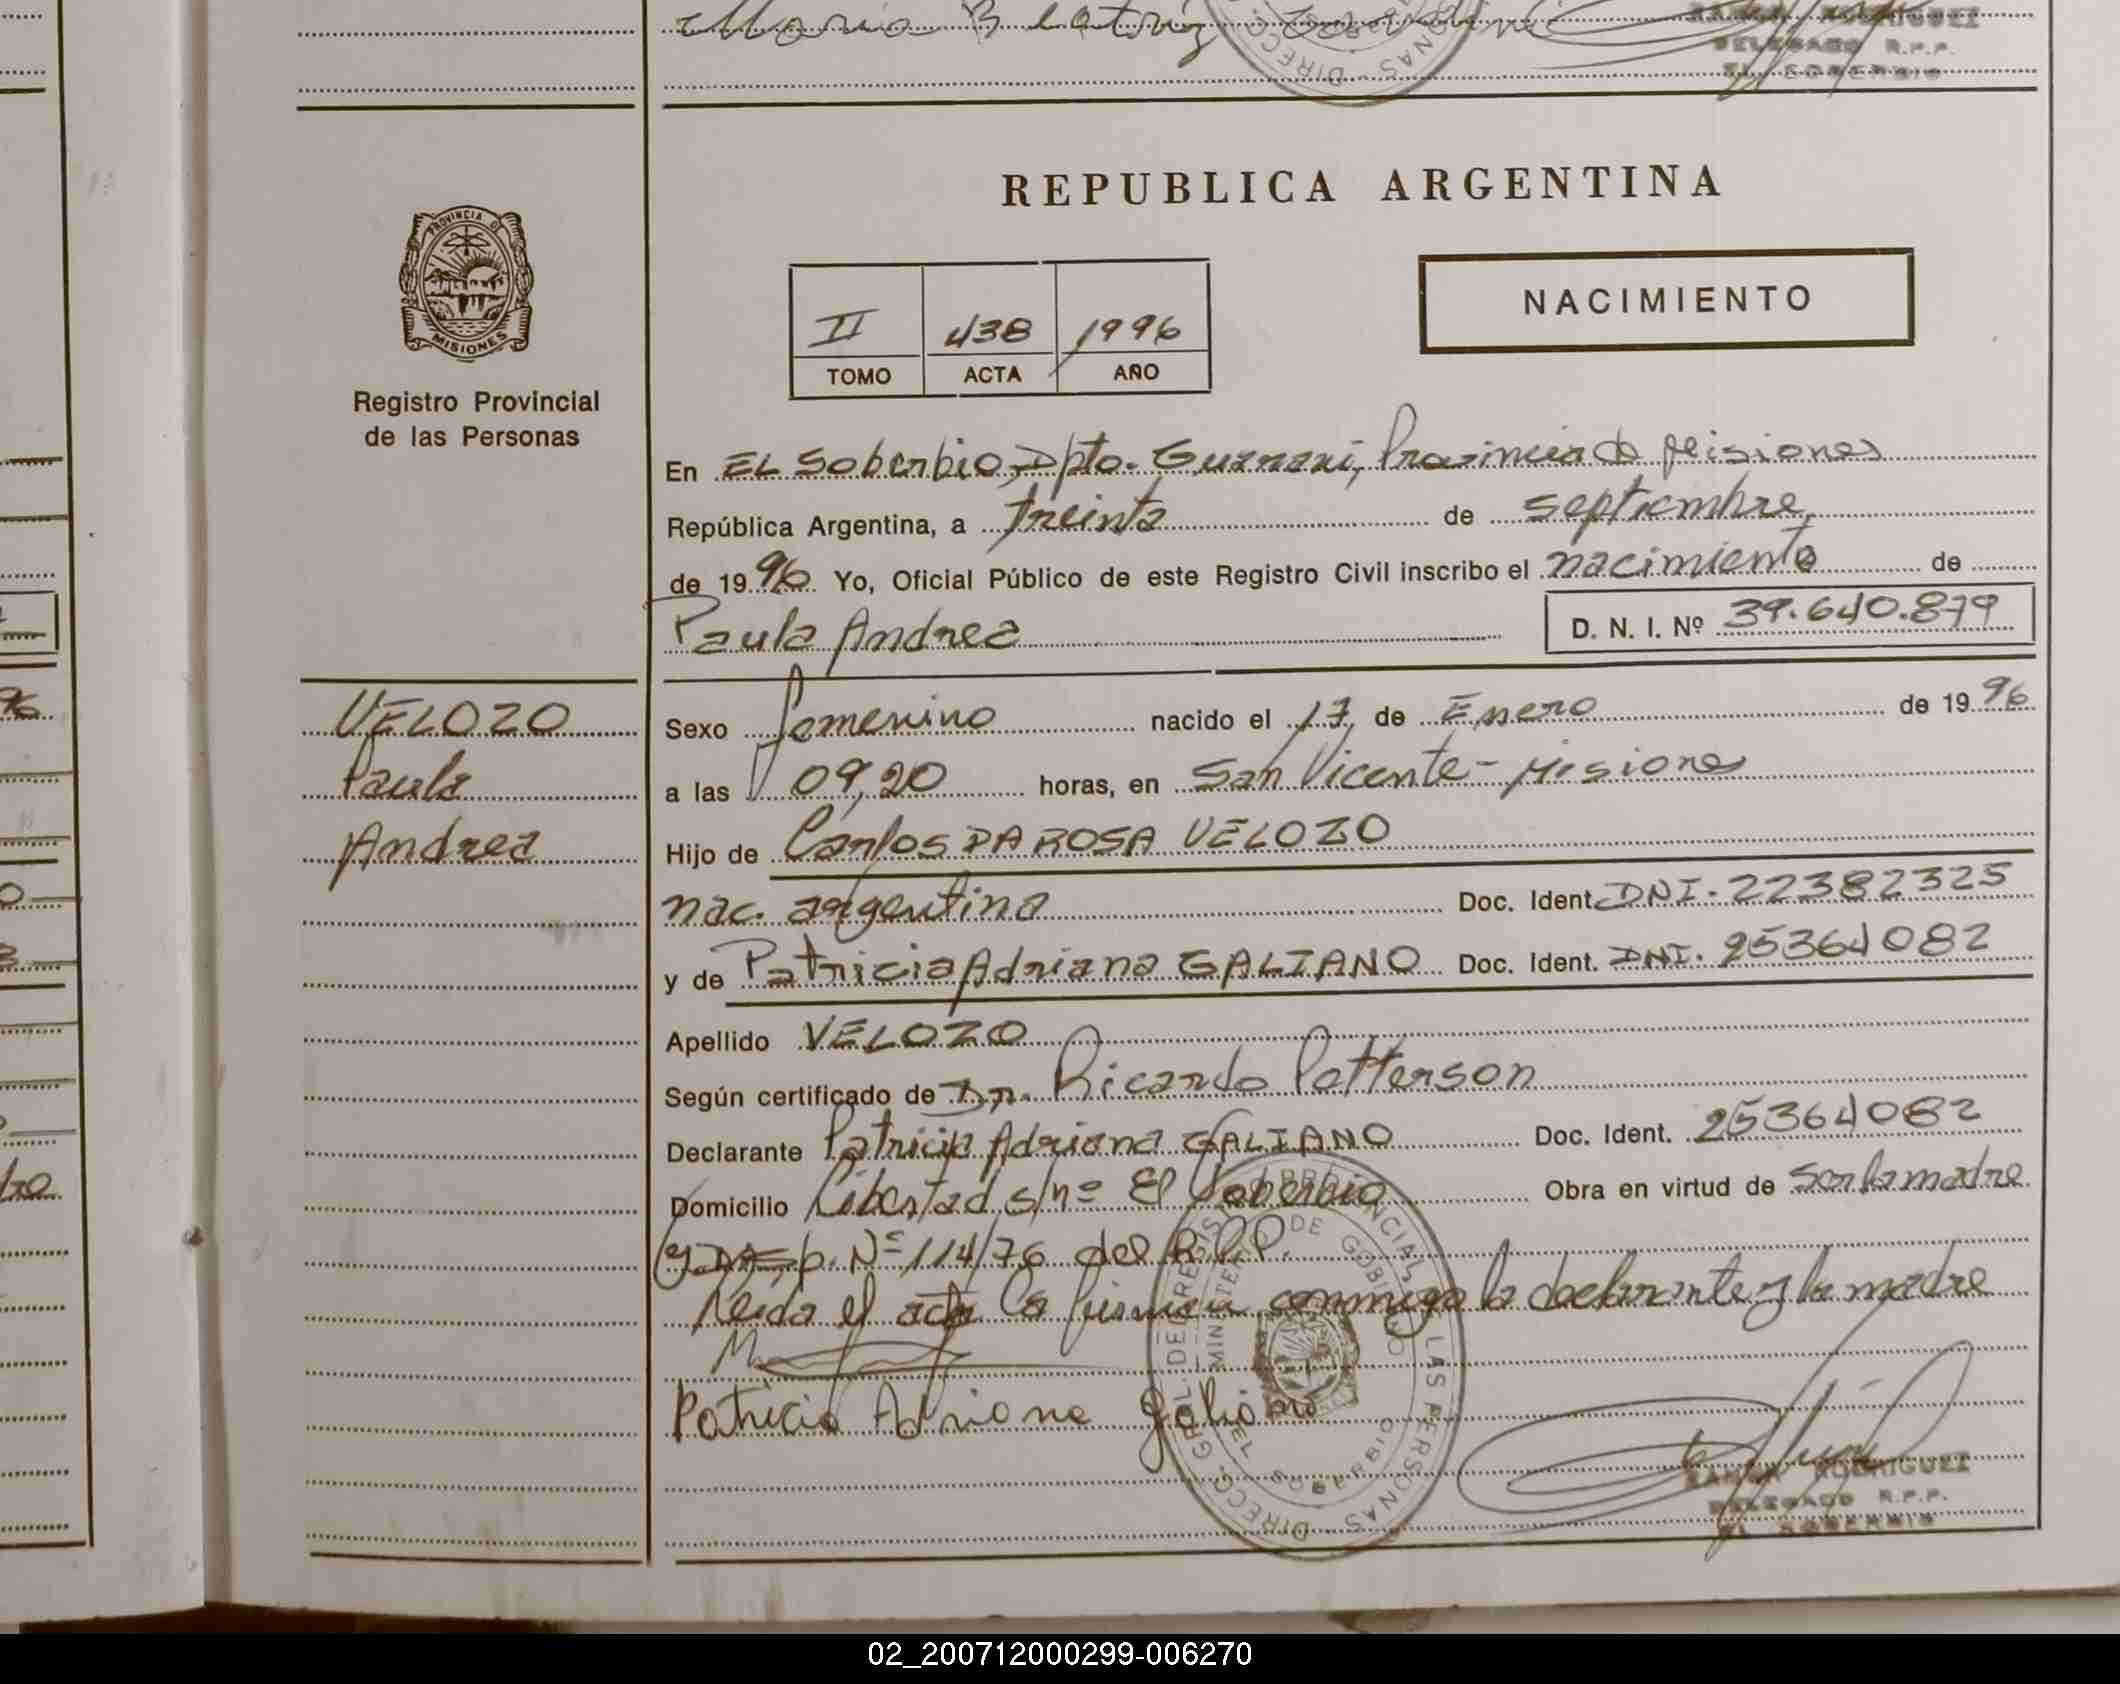 DELEGADO R.P.P.
EL SOBERBIO
REPUBLICA ARGENTINA
PROVINCIA DE
MISIONES
Registro Provincial
de las Personas
II 438 1996
TOMO ACTA AÑO
NACIMIENTO
En EL Soberbio, Dpto. Guarani, Provincia de Misiones
República Argentina, a treinta de septiembre
de 1996 Yo, Oficial Público de este Registro Civil inscribo el nacimiento de
Paula Andrea D. N. I. Nº 39.640.879
VELOZO
Paula
Andrea
Sexo femenino nacido el 17 de Enero de 1996
a las 09,20 horas, en San Vicente - Misiones
Hijo de Carlos DA ROSA VELOZO
nac. argentina Doc. Ident. DNI. 22382325
y de Patricia Adriana GALIANO Doc. Ident. DNI. 25364082
Apellido VELOZO
Según certificado de Dr. Ricardo Patterson
Declarante Patricia Adriana GALIANO Doc. Ident. 25364082
Domicilio Libertad s/nº El Soberbio Obra en virtud de ser la madre
y Disp. Nº 114/76 del R.P.P.
Leida el acta la firman conmigo la declarante y la madre
Patricia Adriana Galiano
DIRECC. GRAL. DE REGISTRO PROVINCIAL DE LAS PERSONAS
MINISTERIO DE GOBIERNO
EL SOBERBIO
RAMON RODRIGUEZ
DELEGADO R.P.P.
EL SOBERBIO
02_200712000299-006270